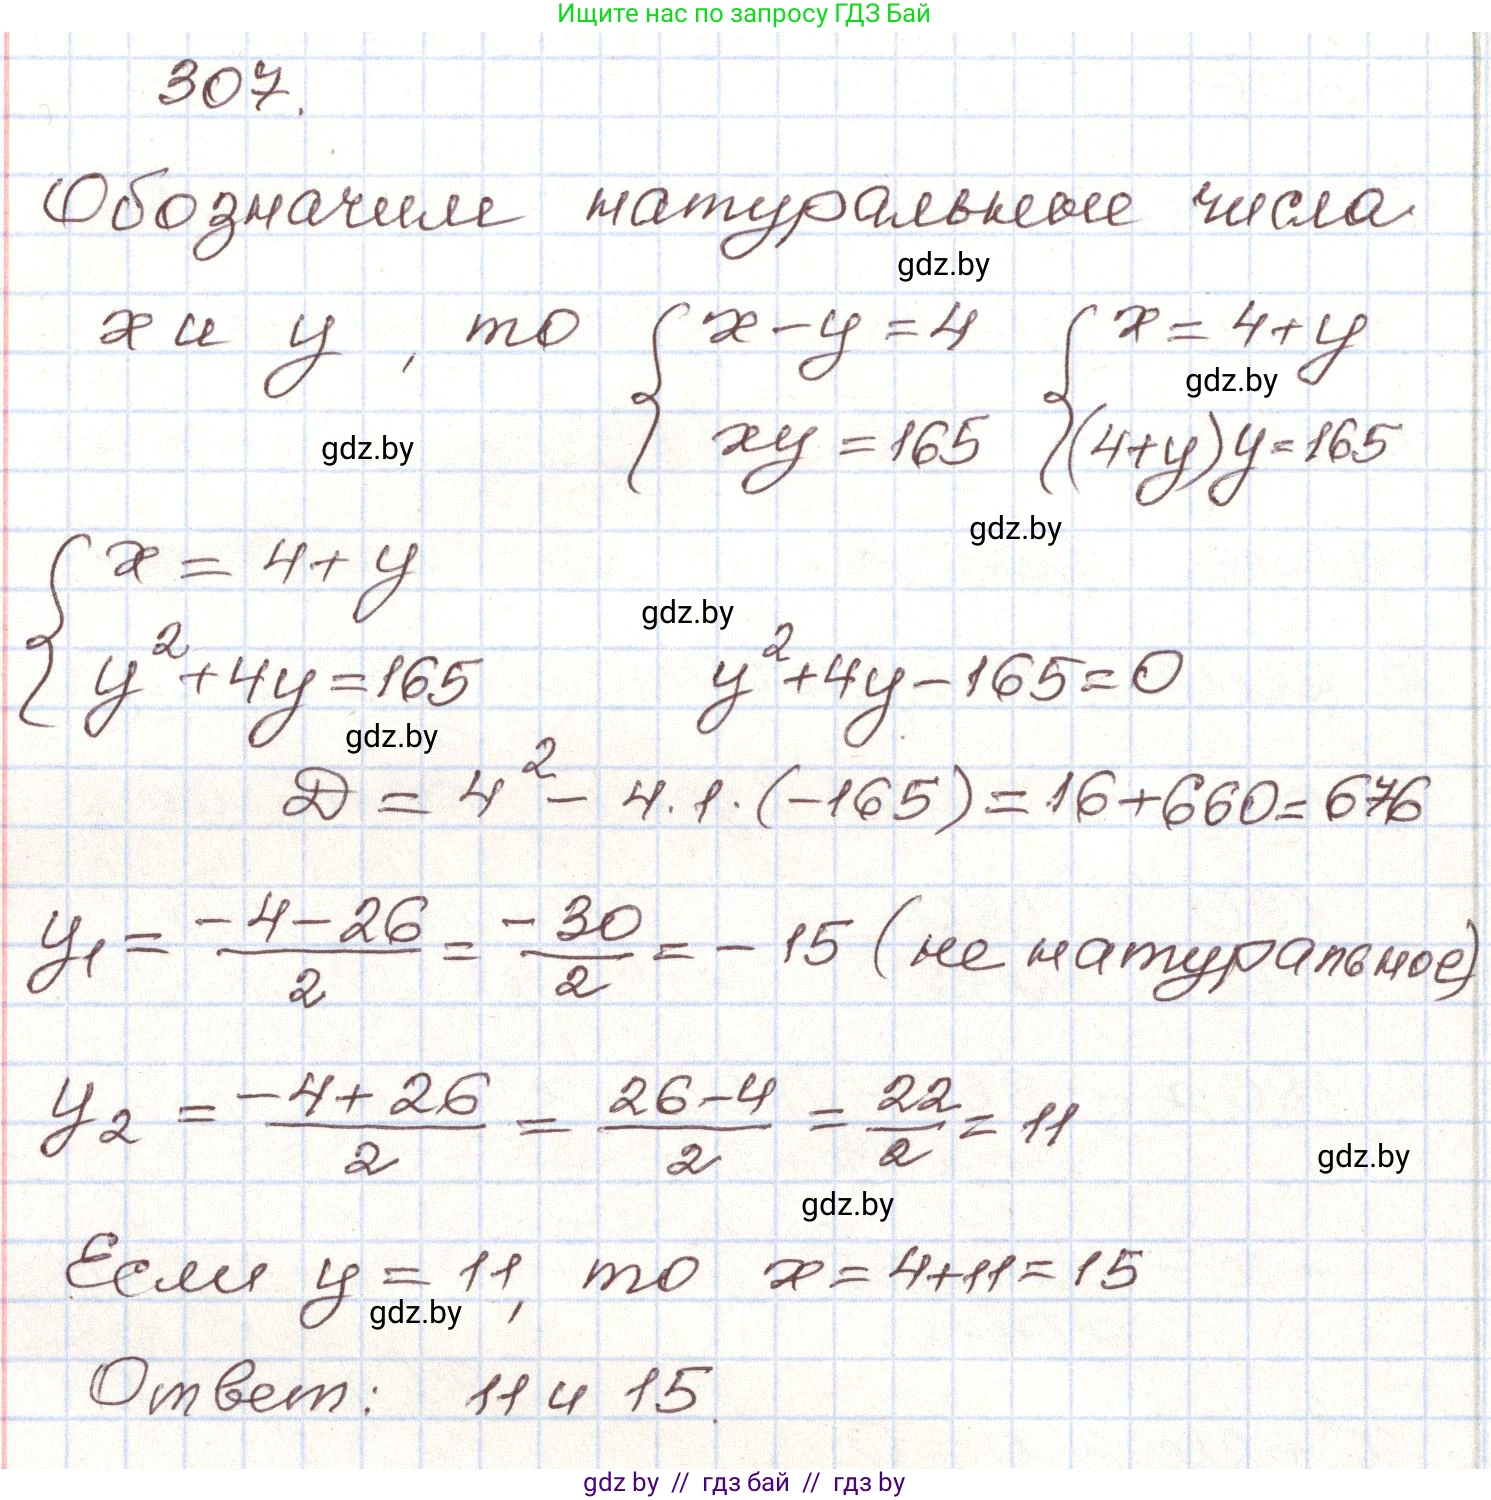 Ищите нас по запросу ГДЗ Бай
307.
Обозначим натуральные числа
gdz.by
x и y, то { x - y = 4 { x = 4 + y
gdz.by
xy = 165 (4+y)y = 165
gdz.by
gdz.by
{ x = 4 + y
gdz.by
y² + 4y = 165 y² + 4y - 165 = 0
gdz.by
D = 4² - 4·1·(-165) = 16 + 660 = 676
y₁ = (-4-26)/2 = -30/2 = -15 (не натуральное)
y₂ = (-4+26)/2 = (26-4)/2 = 22/2 = 11
gdz.by
gdz.by
Если y = 11, то x = 4+11 = 15
gdz.by
Ответ: 11 и 15.
gdz.by // гдз бай // гдз by